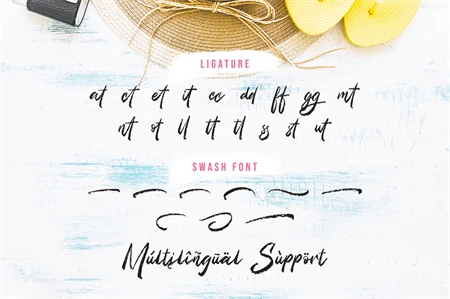 LIGATURE
at ct et it cc dd ff gg mt
nt ot ll tt tl ss st ut
SWASH FONT
Múltįlîñgüäl Sùppört